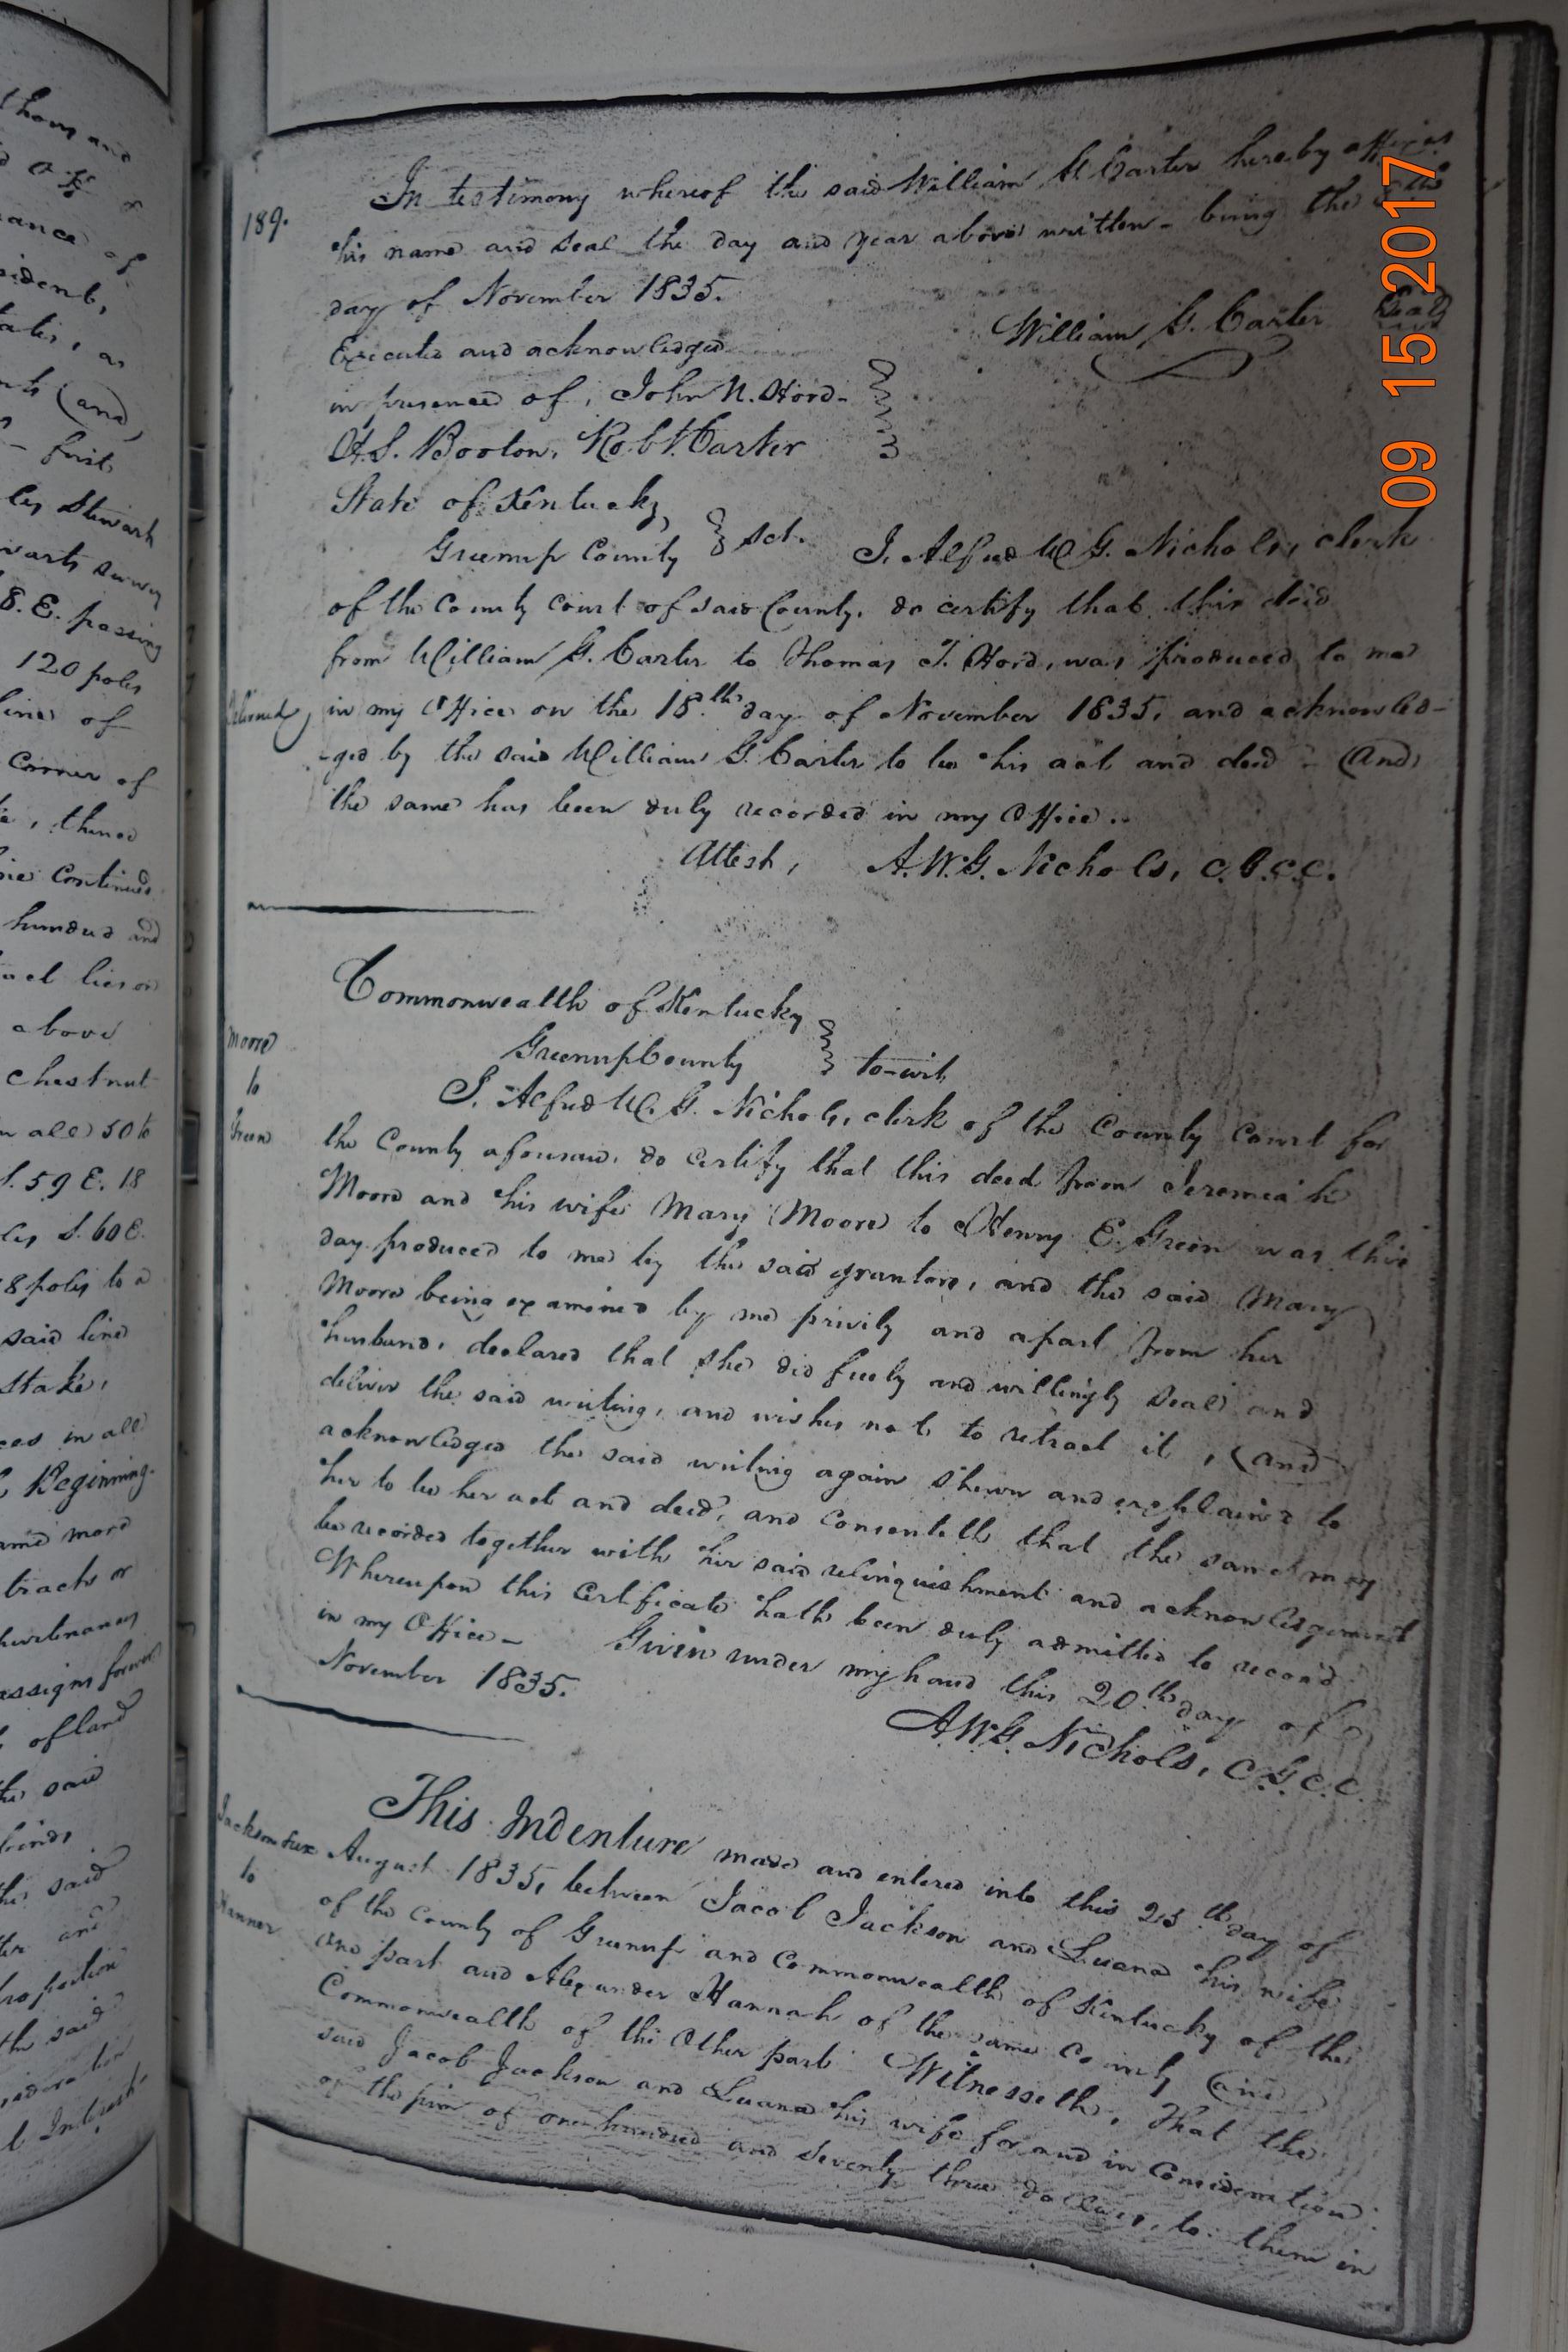 thous and
ance of
sident,
tates, as
nts (and,
first
les Stewart
warts survey
8. E. passing
120 poles
line of
Corner of
thence
line continued
hundred and
tract lies on
above
chestnut
in all 50 to
S. 59 E. 18
les S. 60 E.
8 poles to a
said line
Stake,
ces in all
Beginning.
same more
tracts or
hurtenances
assigns forever
of land
the said
the said
and
proportion
the said
sideration
Interest
189.
In testimony whereof the said William G. Carter hereby affixes
his name and seal the day and year above written - being the
day of November 1835.
William G. Carter Seal
Executed and acknowledged
in presence of, John N. Hord-
H.S. Booton, Robt. Carter
State of Kentucky,
Greenup County } Sct. I, Alfred W. G. Nichols, clerk
of the County Court of said County, do certify that this deed
from William G. Carter to Thomas T. Hord, was produced to me
Delivered, in my Office on the 18th day of November 1835, and acknowled-
-ged by the said William G. Carter to be his act and deed - (And)
the same has been duly recorded in my Office..
Attest, A.W.G. Nichols, C.G.C.C.
Commonwealth of Kentucky
Greenup County } to-wit
Moore
to
Green
I, Alfred W. G. Nichols, clerk of the County Court for
the County aforesaid, do certify that this deed from Jeremiah
Moore and his wife Mary Moore to Henry E. Green was this
day produced to me by the said grantors, and the said Mary
Moore being examined by me privily and apart from her
husband, declared that she did freely and willingly seal and
deliver the said writing, and wishes not to retract it, (and
acknowledged the said writing again shewn and explained to
her to be her act and deed, and consenteth that the same may
be recorded together with her said relinquishment and acknowledgement
Whereupon this Certificate hath been duly admitted to record
in my Office - Given under my hand this 20th day of
November 1835.
A.W.G. Nichols, C.G.C.C.
Jackson &ux
to
Hanner
This Indenture made and entered into this 25th day of
August 1835, between Jacob Jackson and Luana his wife
of the County of Greenup and Commonwealth of Kentucky of the
one part and Alexander Hannah of the same County (and
Commonwealth of the Other part Witnesseth, That the
said Jacob Jackson and Luana his wife for and in Consideration
of the sum of one hundred and seventy three dollars, to them in
09 15 2017